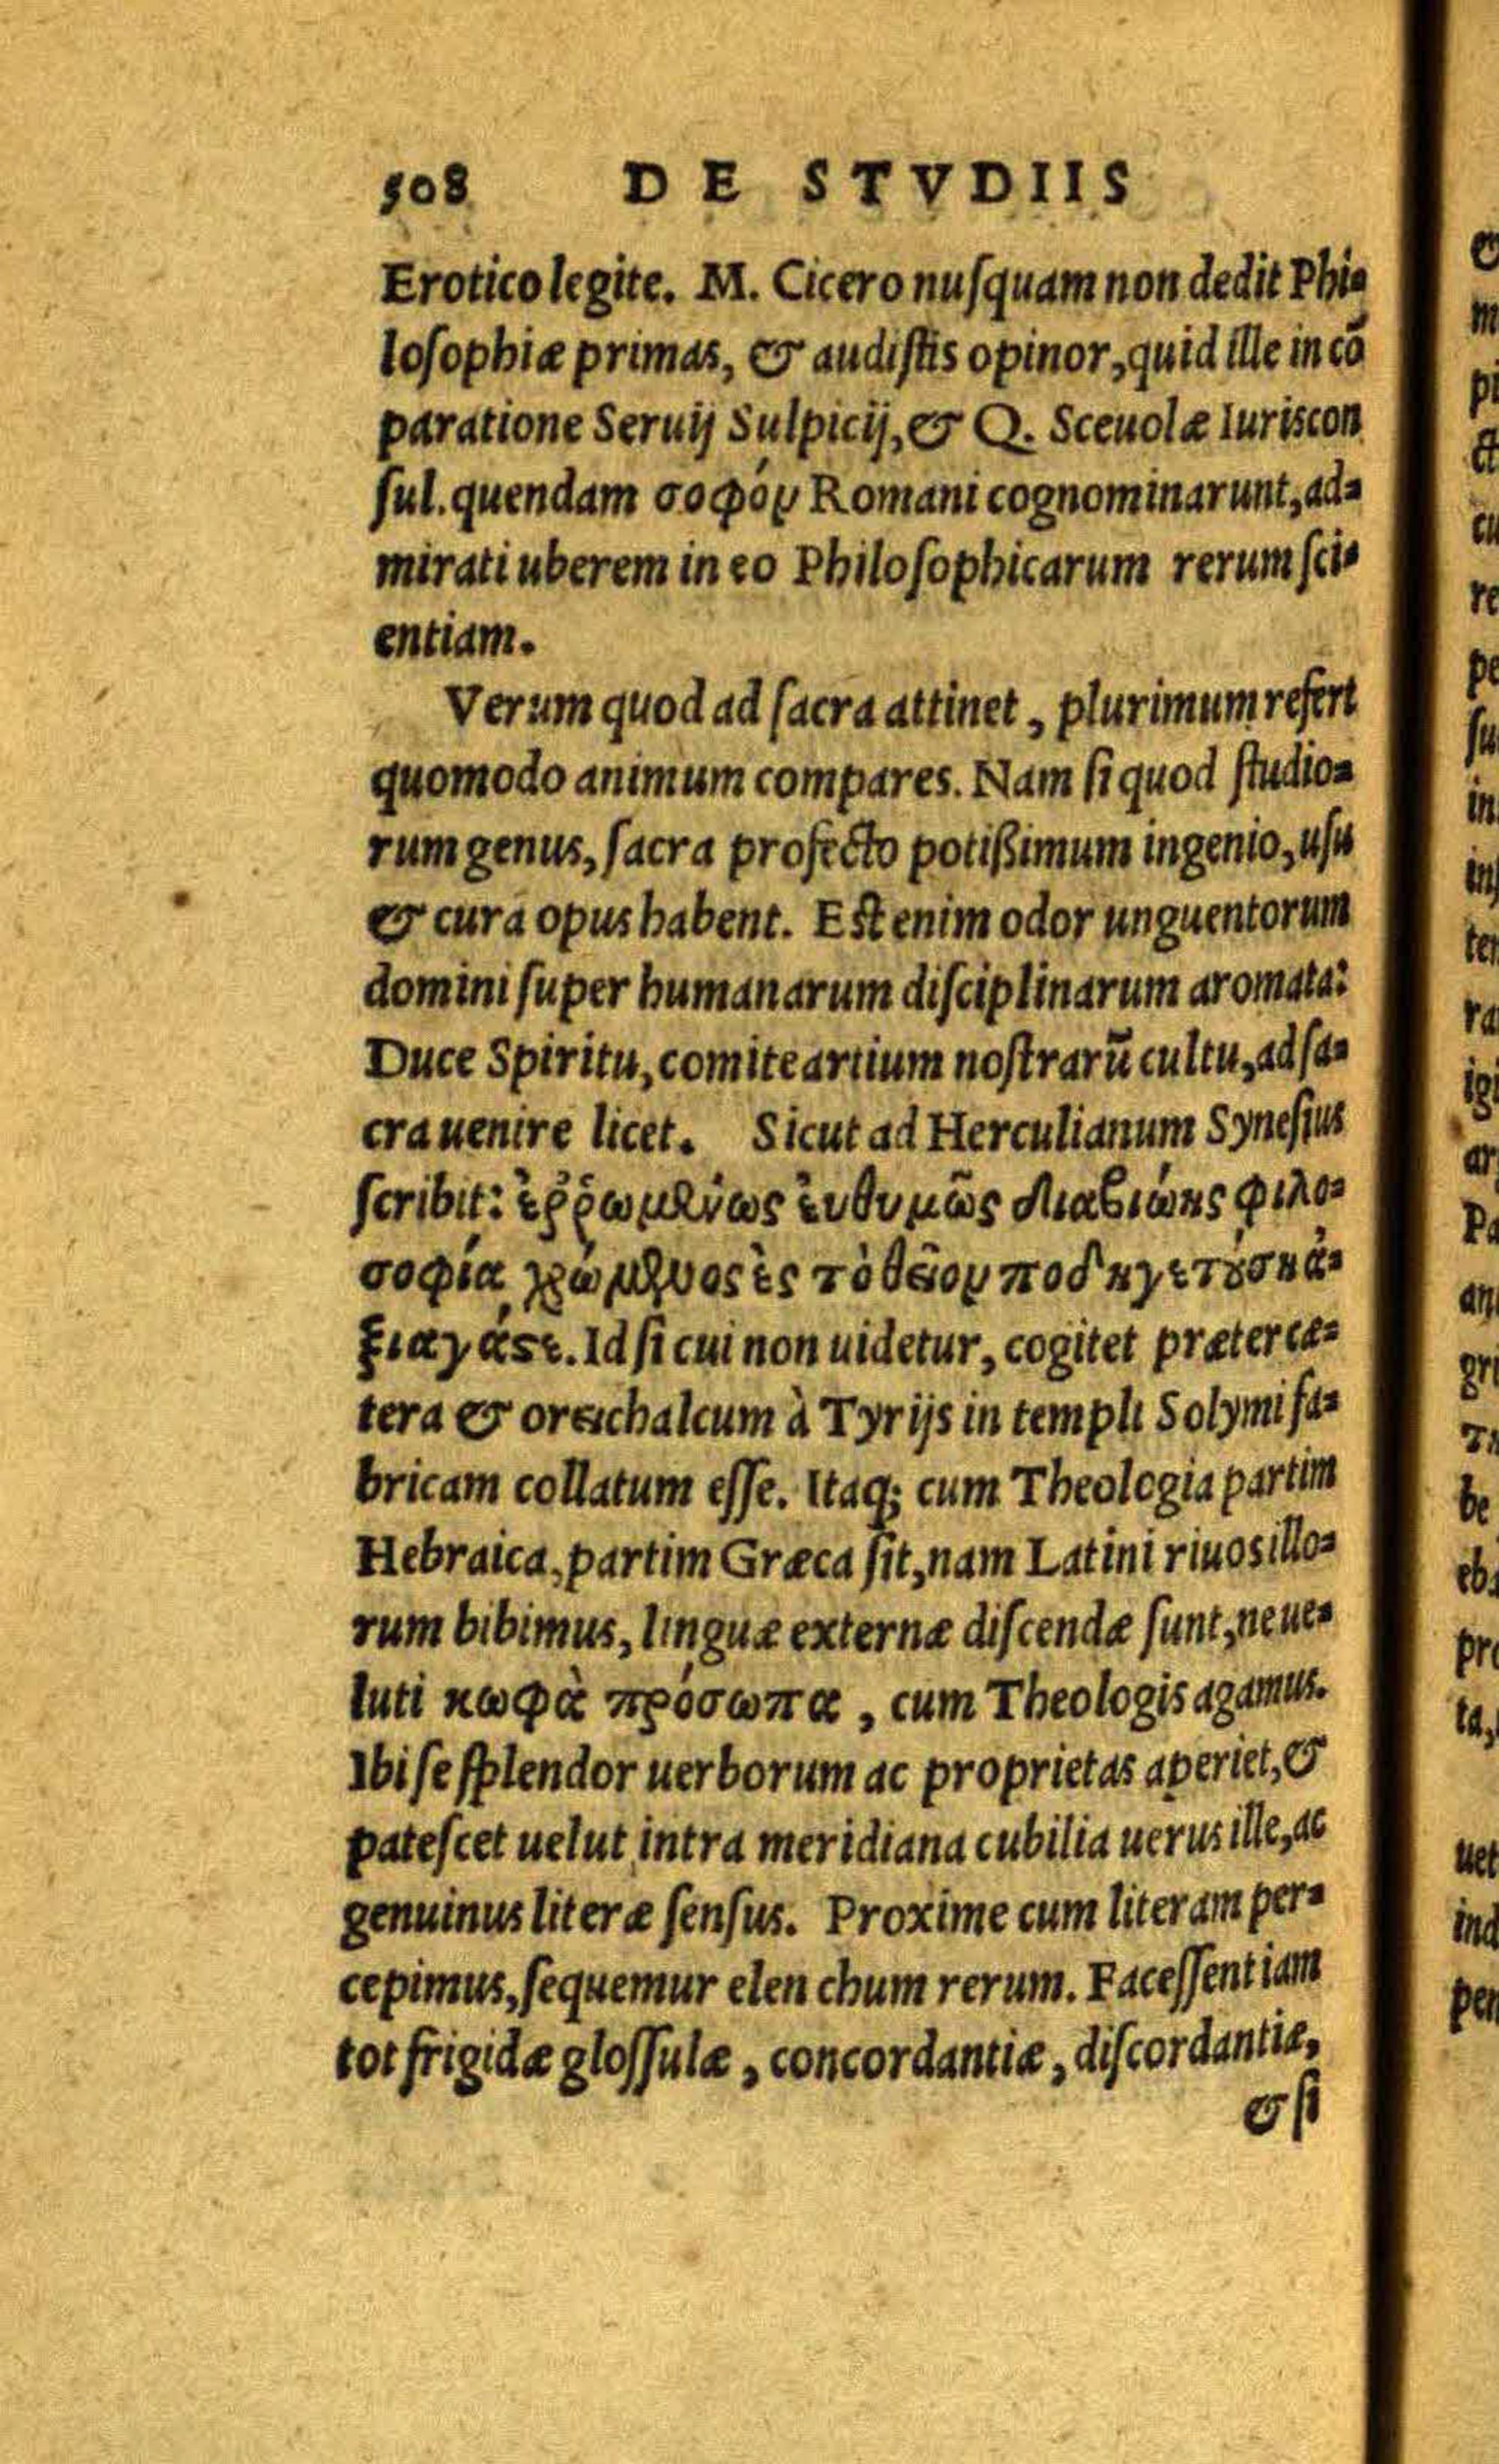 508 DE STVDIIS
Erotico legite. M. Cicero nuſquam non dedit Phi=
loſophiæ primas, & audiſtis opinor, quid ille in cō
paratione Seruij Sulpicij, & Q. Sceuolæ Iuriscon
ſul. quendam σοφόν Romani cognominarunt, ad=
mirati uberem in eo Philoſophicarum rerum ſci=
entiam.
Verum quod ad ſacra attinet, plurimum refert
quomodo animum compares. Nam ſi quod ſtudio=
rum genus, ſacra profecto potißimum ingenio, uſu
& cura opus habent. Eſt enim odor unguentorum
domini ſuper humanarum diſciplinarum aromata:
Duce Spiritu, comite artium noſtrarū cultu, ad ſa=
cra uenire licet. Sicut ad Herculianum Syneſius
ſcribit: ἐῤῥωμένως ἐυθυμῶς διαβιώης φιλο=
σοφία χρώμενος ἐς τὸ θεῖον ποδηγετούσῃ ἀ=
ξιαγάςε. Id ſi cui non uidetur, cogitet præter cæ=
tera & oreichalcum à Tyrijs in templi Solymi fa=
bricam collatum eſſe. Itaq; cum Theologia partim
Hebraica, partim Græca ſit, nam Latini riuos illo=
rum bibimus, linguæ externæ diſcendæ ſunt, ne ue=
luti κωφὰ πρόσωπα, cum Theologis agamus.
Ibi ſe ſplendor uerborum ac proprietas aperiet, &
pateſcet uelut intra meridiana cubilia uerus ille, ac
genuinus literæ ſenſus. Proxime cum literam per=
cepimus, ſequemur elen chum rerum. Faceſſent iam
tot frigidæ gloſſulæ, concordantiæ, diſcordantiæ,
& ſi